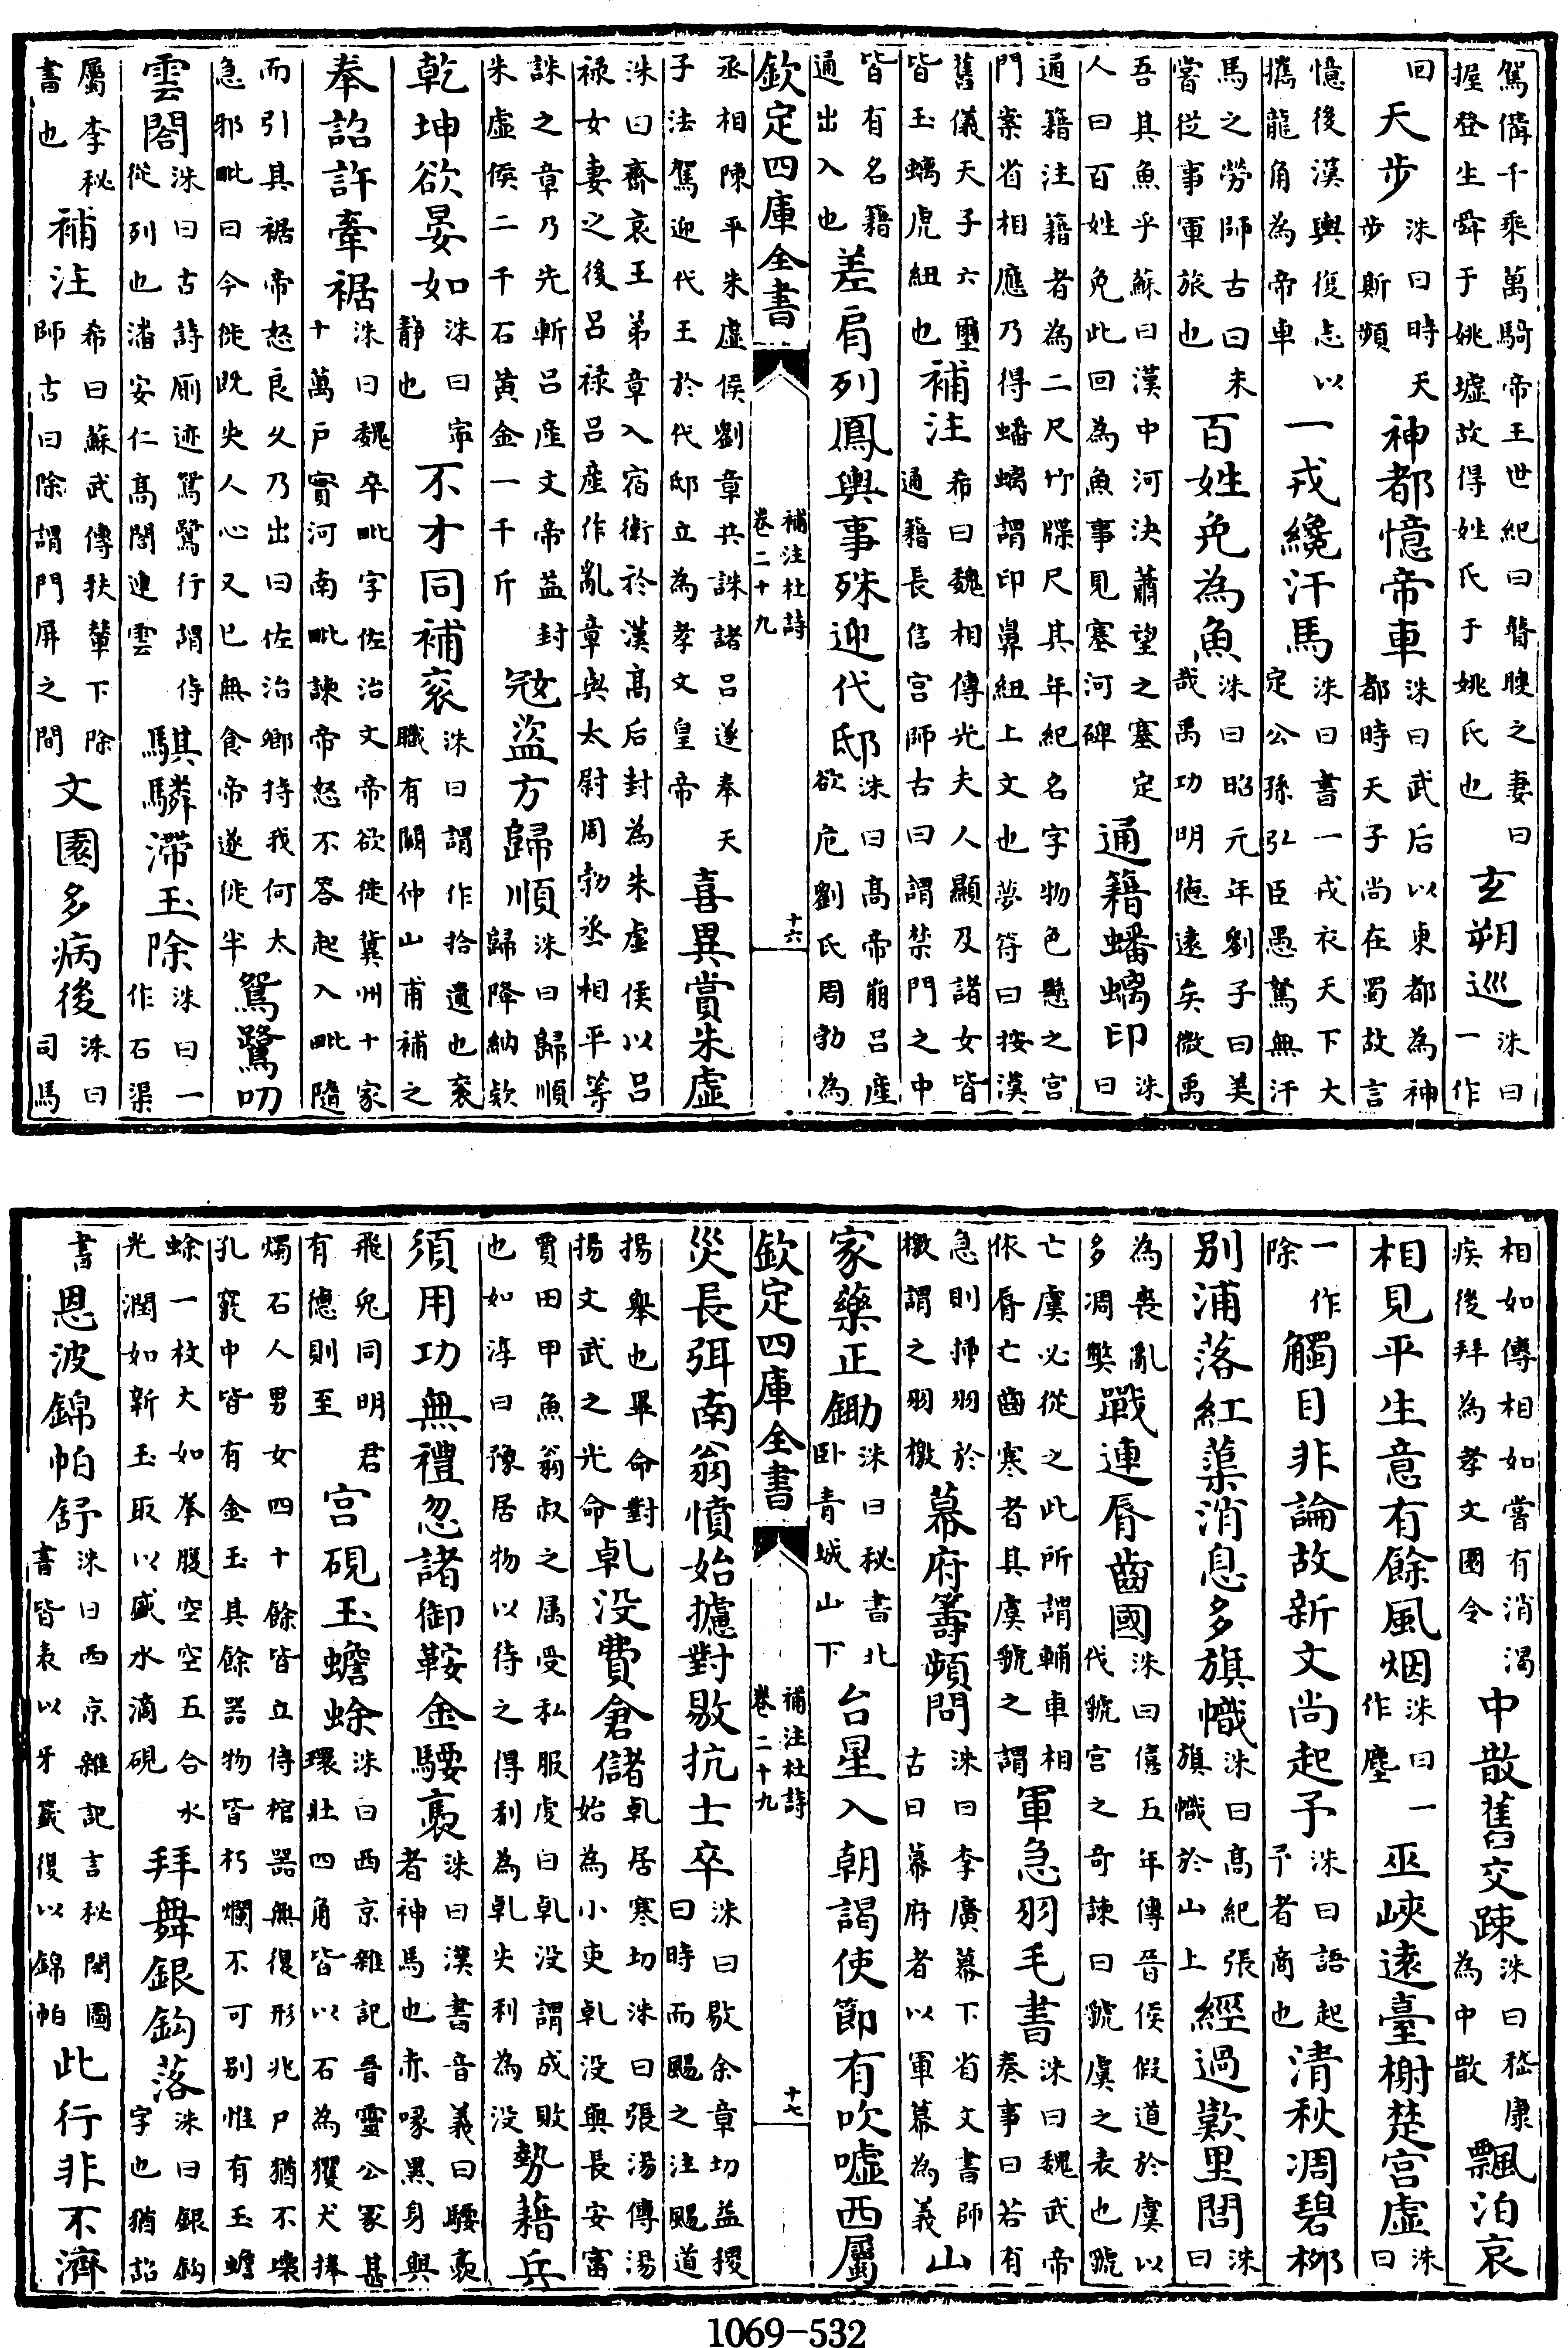 駕備千乘萬騎帝王世紀曰瞽瞍之妻曰握登生舜于姚墟故得姓氏于姚氏也玄朔巡洙曰一作
回天步洙曰時天步斯頻神都憶帝車洙曰武后以東都為神都時天子尚在蜀故言
憶後漢輿復志以攜龍角為帝車一戎纔汗馬洙曰書一戎衣天下大定公孫弘臣愚駑無汗
馬之勞師古曰未嘗從事軍旅也百姓免為魚洙曰昭元年劉子曰美哉禹功明德遠矣微禹
吾其魚乎蘇曰漢中河決蕭望之塞定人曰百姓免此回為魚事見塞河碑通籍蟠螭印洙曰
通籍注籍者為二尺竹牒尺其年紀名字物色懸之宮門案省相應乃得蟠螭謂印鼻紐上文也夢符曰按漢
舊儀天子六璽皆玉螭虎紐也補注希曰魏相傳光夫人顯及諸女皆通籍長信宮師古曰謂禁門之中
皆有名籍通出入也差肩列鳳輿事殊迎代邸洙曰高帝崩呂產欲危劉氏周勃為
欽定四庫全書 補注杜詩卷二十九 十六
丞相陳平朱虛侯劉章共誅諸呂遂奉天子法駕迎代王於代邸立為孝文皇帝喜異賞朱虛
洙曰齊哀王弟章入宿衛於漢高后封為朱虛侯以呂祿女妻之後呂祿呂產作亂章與太尉周勃丞相平等
誅之章乃先斬呂產文帝益封朱虛侯二千石黃金一千斤冦盜方歸順洙曰歸順歸降納欵
乾坤欲晏如洙曰寧靜也不才同補衮洙曰謂作拾遺也衮職有闕仲山甫補之
奉詔許牽裾洙曰魏卒毗字佐治文帝欲徙冀州十家十萬戶實河南毗諫帝怒不答起入毗隨
而引其裾帝怒良久乃出曰佐治卿持我何太急邪毗曰今徙既失人心又已無食帝遂徙半鴛鷺叨
雲閣洙曰古詩廁迹鴛鷺行隋侍從列也潘安仁高閣連雲騏驎滯玉除洙曰一作石渠
屬李秘書也補注希曰蘇武傳扶輦下除師古曰除謂門屏之間文園多病後洙曰司馬
相如傳相如嘗有消渴疾後拜為孝文園令中散舊交踈洙曰嵇康為中散飄泊哀
相見平生意有餘風烟洙曰一作塵巫峽遠臺榭楚宮虛洙曰
一作除觸目非論故新文尚起予洙曰語起予者商也清秋凋碧柳
別浦落紅蕖消息多旗幟洙曰高紀張旗幟於山上經過歎里閭洙曰
為喪亂多凋弊戰連脣齒國洙曰僖五年傳晉侯假道於虞以代虢宮之奇諫曰虢虞之表也虢
亡虞必從之此所謂輔車相依脣亡齒寒者其虞虢之謂軍急羽毛書洙曰魏武帝奏事曰若有
急則揷羽於檄謂之羽檄幕府籌頻問洙曰李廣幕下省文書師古曰幕府者以軍幕為義山
家藥正鋤洙曰秘書北卧青城山下台星入朝謁使節有吹噓西屬
欽定四庫全書 補注杜詩卷二十九 十七
災長弭南翁憤始攄對敭抗士卒洙曰敭余章切益稷曰時而颺之注颺道
揚舉也畢命對揚文武之光命乹没費倉儲乹居寒切洙曰張湯傳湯始為小吏乹没與長安富
賈田甲魚翁叔之属受私服虔曰乹没謂成敗也如淳曰豫居物以待之得利為乹失利為没勢藉兵
須用功無禮忽諸御鞍金騕褭洙曰漢書音義曰騕褭者神馬也赤喙黑身與
飛兔同明君有德則至宮硯玉蟾蜍洙曰西京雜記晉靈公冢甚瓌壯四角皆以石為玃犬捧
燭石人男女四十餘皆立侍棺器無復形兆尸猶不壞孔竅中皆有金玉其餘器物皆朽爛不可别惟有玉蟾
蜍一枚大如拳腹空空五合水光潤如新玉取以盛水滴硯拜舞銀鈎落洙曰銀鈎字也猶詔
書恩波錦帕舒洙曰西京雜記言秘閣圖書皆表以牙籤復以錦帕此行非不濟
1069-532